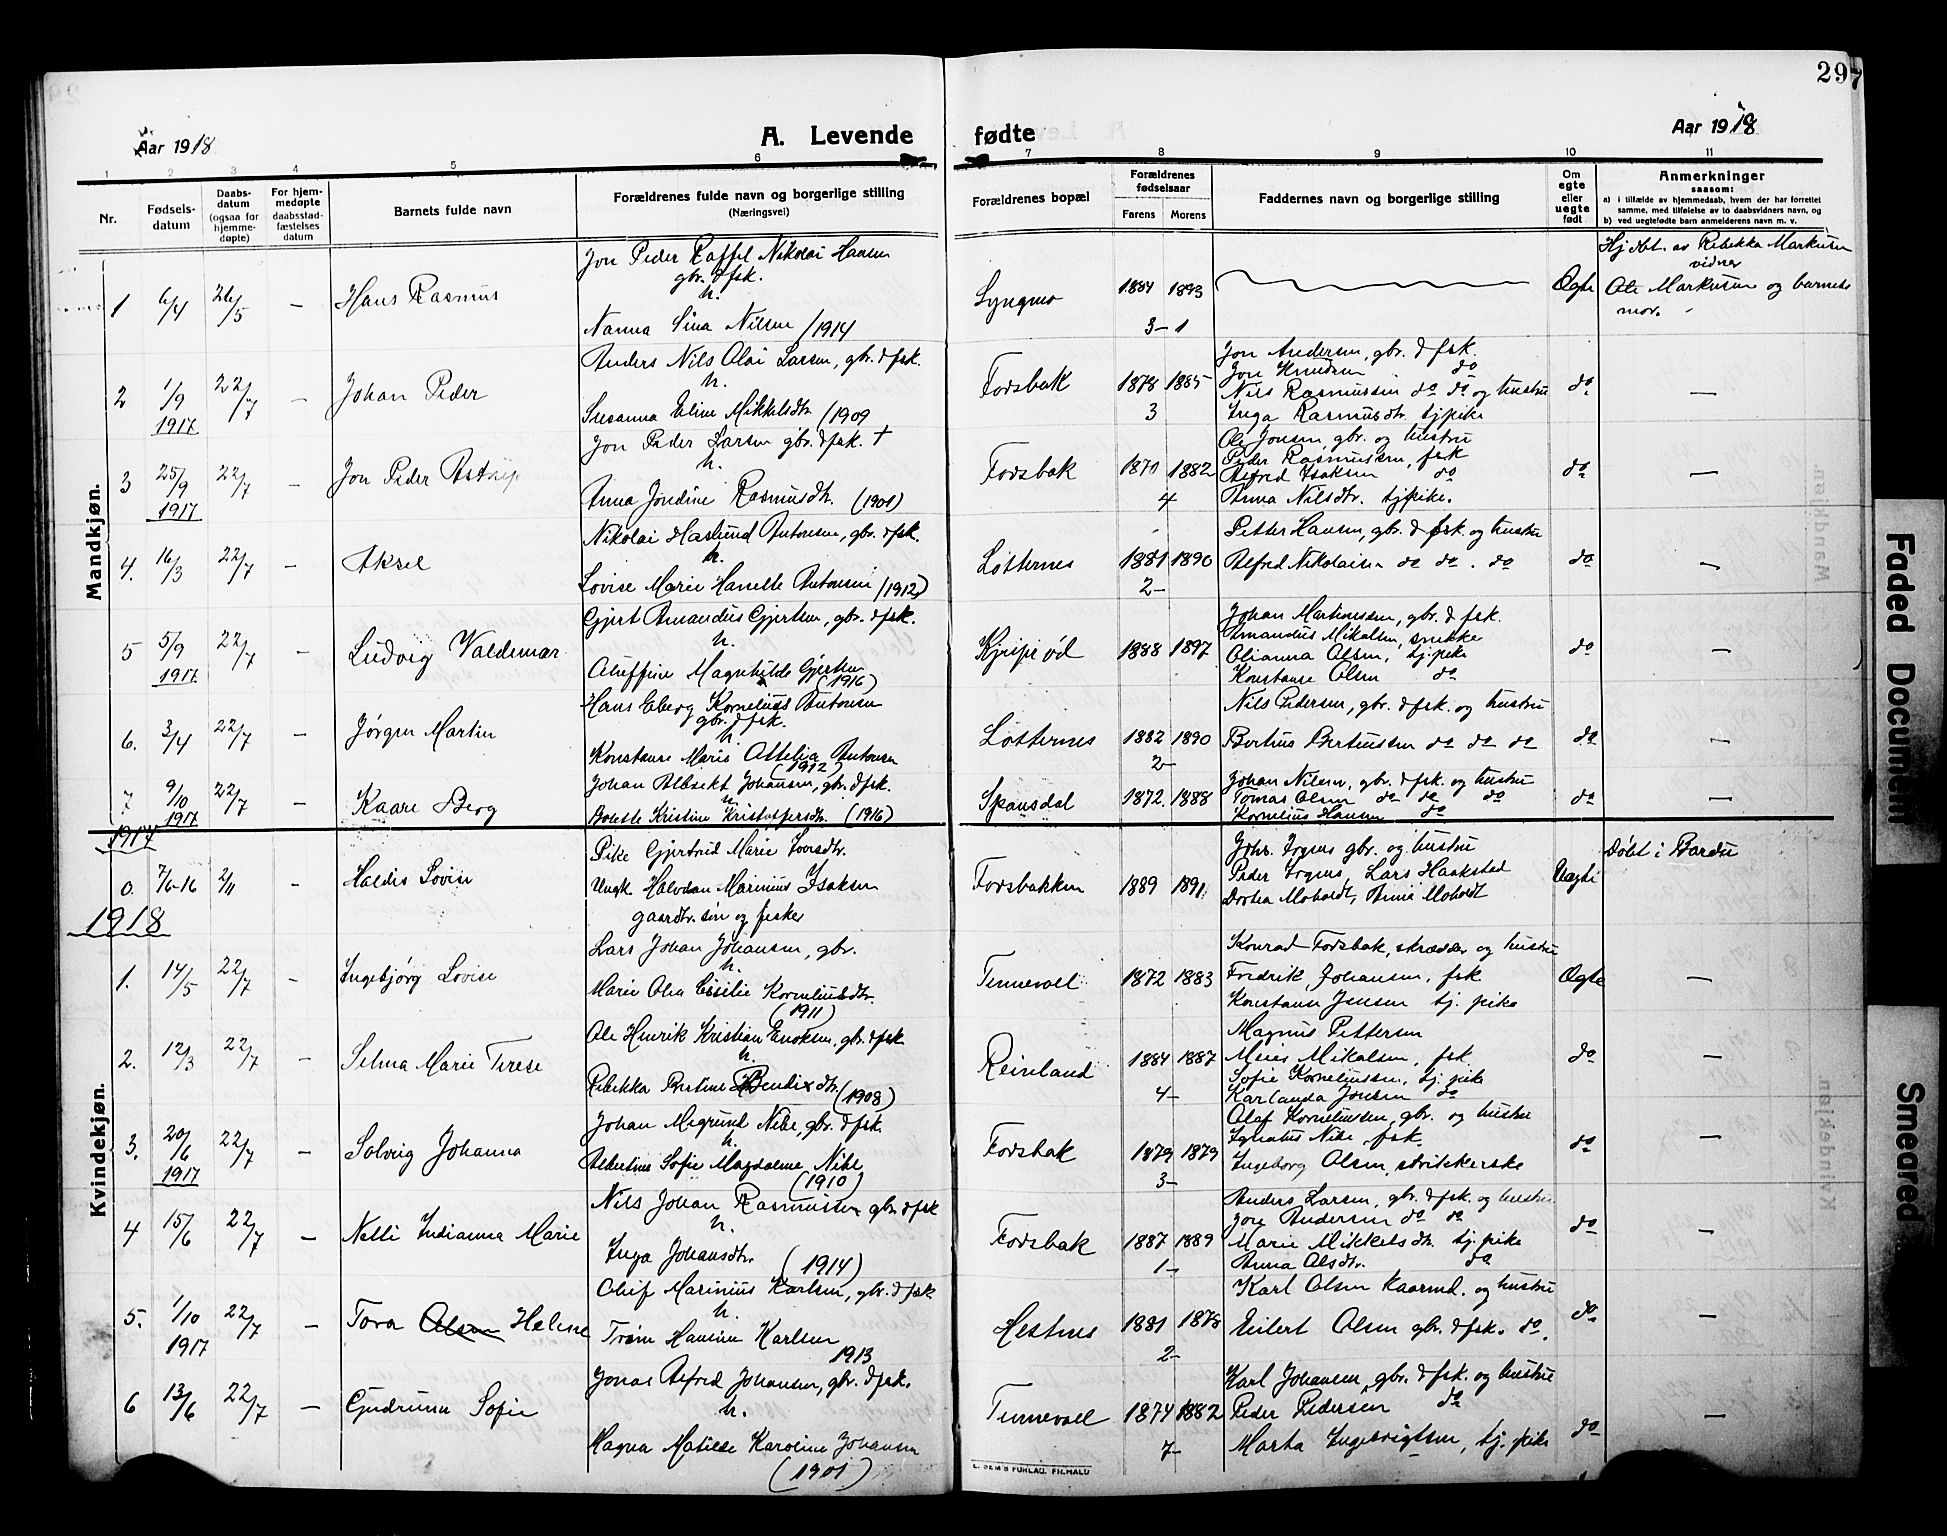 297
Aar 1918
A. Levende fødte
Aar 1918
1 2 3 4 5 6 7 8 9 10 11
Nr.
Fødsels-
datum
Daabs-
datum
(ogsaa for
hjemme-
døpte)
For hjem-
medøpte
daabsstad-
fæstelses
datum
Barnets fulde navn
Forældrenes fulde navn og borgerlige stilling
(Næringsvei)
Forældrenes bopæl
Forældrenes
fødselsaar
Farens Morens
Faddernes navn og borgerlige stilling
Om
egte
eller
uegte
født
Anmerkninger
saasom:
a) i tilfælde av hjemmedaab, hvem der har forrettet
samme, med tilføielse av to daabsvidners navn, og
b) ved uegtefødte barn anmelderens navn m. v.
Mandkjøn.
1 6/4 26/5 – Hans Rasmus
Jon Peder Raffel Nikolai Hansen
gbr. & fsk.
h.
Nanna Sina Nilsen (1914
Lyngmo 1884 1893
3 – 1
Ægte
Hj.dbt. av Rebekka Markusen
vidner
Ole Markusen og barnets
mor.
2 1/9 1917 22/7 – Johan Peder
Anders Nils Olai Larsen, gbr. & fsk.
h.
Susanna Eline Mikkelsdtr. (1909
Fossbak 1878 1885
3
Jon Andersen, gbr. & fsk.
Jon Knudsen do
Nils Rasmussen do do og hustru
Inga Rasmusdtr. tj.pike
do –
3 25/9 1917 22/7 – Jon Peder Astrup
Jon Peder Larsen gbr. & fsk. †
h.
Anna Jondine Rasmusdtr. (1901)
Fossbak 1870 1882
4
Ole Jonsen gbr. og hustru
Peder Rasmussen, fsk
Alfred Isaksen do
Anna Nilsdtr. tj.pike.
do –
4. 16/3 22/7 – Aksel
Nikolai Haslund Antonsen, gbr. & fsk.
h.
Lovise Marie Hanelle Antonsen (1912)
Løtternes 1881 1890
2 –
Petter Hansen, gbr. & fsk. og hustru
Alfred Nikolaisen do do. do
do –
5 5/9 1917 22/7 – Ludvig Valdemar
Gjert Amandus Gjertsen, gbr. & fsk.
h.
Oluffine Magnhilde Gjertsen
(1916)
1888 1897
Johan Martinussen, gbr. & fsk.
Amandus Mikalsen, snekke
Olianna Olsen, tj. pike
Konstanse Olsen do
do –
6. 3/4 22/7 – Jørgen Martin
Hans Eberg Kornelius Antonsen
gbr. & fsk.
h.
Konstanse Marie Attelia Antonsen
(1912)
Løtternes 1882 1890
2 –
Nils Pedersen, gbr. & fsk. og hustru
Bertius Bertiussen do do do
do –
7 9/10 1917 22/7 – Kaare Berg
Johan Albrekt Johansen, gbr. & fsk.
h.
Bolette Kristine Kristoffersdtr. (1916)
Spansdal 1872 1888
Johan Nilsen, gbr. & fsk. og hustru
Tomas Olsen do do do
Kornelius Hansen do
do –
1917
0. 7/6-16 2/11 – Haldis Lovise
Pike Gjertrud Marie
Ungk. Halvdan Marinius Isaksen
gaardbr. søn og fisker
Fossbakken 1889 1891
Johs. Fogens gbr. og hustru
Peder Fogens, Lars Haakstad
Dortea Moholdt, Anna Moholdt
Uægte
Døbt i Bardu
1918
Kvindekjøn.
1. 14/5 22/7 – Ingebjørg Lovise
Lars Johan Johansen, gbr.
h.
Marie Olea Cecilie Korneliusdtr.
(1911)
Tennevoll 1872 1883
Konrad Fossbak, skrædder og hustru
Fredrik Johansen, fsk
Konstanse Jensen tj. pike
Ægte –
2. 12/3 22/7 – Selma Marie Terese
Ole Henrik Kristian Enoksen, gbr. & fsk
h.
Rebekka Bertine Bendixdtr. (1908)
Reinland 1884 1887
4 –
Magnus Pettersen
Meier Mikalsen, fsk
Sofie Korneliussen, tj. pike
Karlanda Jonsen do
do –
3. 20/6 1917 22/7 – Solveig Johanna
Johan Migrund Nibe, gbr. & fsk.
h.
Albertine Sofie Magdalene Nibe
(1910)
Fossbak 1879 1879
3 –
Olaf Korneliussen, gbr. og hustru
Ignatus Nibe, fsk.
Ingeborg Olsen, strikkerske
do –
4 15/6 22/7 – Nelli Indianna Marie
Nils Johan Rasmussen gbr. & fsk
h.
Inga Johansdtr. (1914)
Fossbak 1887 1889
1 –
Anders Larsen, gbr. & fsk. og hustru
Jon Andersen do do
Marie Mikkelsdtr. tj. pike
Anna Olsdtr. do
do –
5. 1/10 1917 22/7 – Tora Olsen Helene
Oluf Marinius Karlsen, gbr. & fsk.
h.
Trøin Hansine Karlsen
1913
Hestnes 1881 1878
2 –
Karl Olsen kaarmd. og hustru
Eilert Olsen gbr. & fsk. do.
do –
6 13/6 22/7 – Gudrunn Sofie
Jonas Alfred Johansen, gbr. & fsk.
h.
Magna Matilde Karoline Johansen
(1901)
Tennevoll 1874 1882
7 –
Karl Johansen gbr. & fsk. og hustru
Peder Pedersen do
Marta Ingebrigtsen, tj. pike
do –
Faded Document
Smeared.